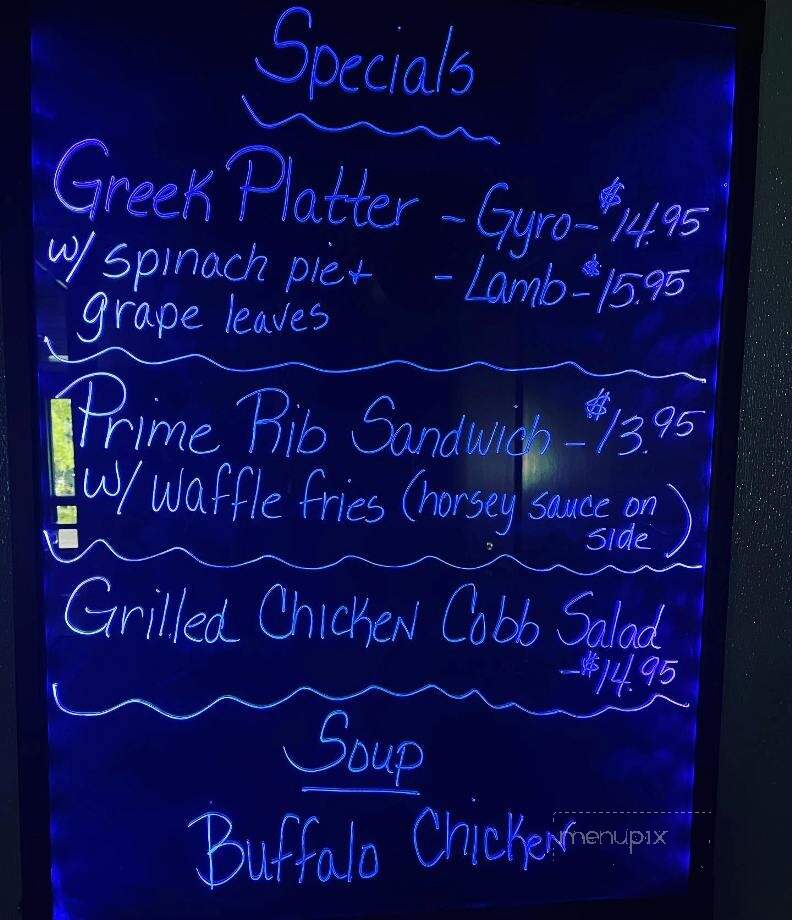 Specials
Greek Platter - Gyro - $14.95
w/ spinach pie + - Lamb - $15.95
grape leaves
Prime Rib Sandwich - $13.95
w/ waffle fries (horsey sauce on
side)
Grilled Chicken Cobb Salad
- $14.95
Soup
Buffalo Chicken
menupix